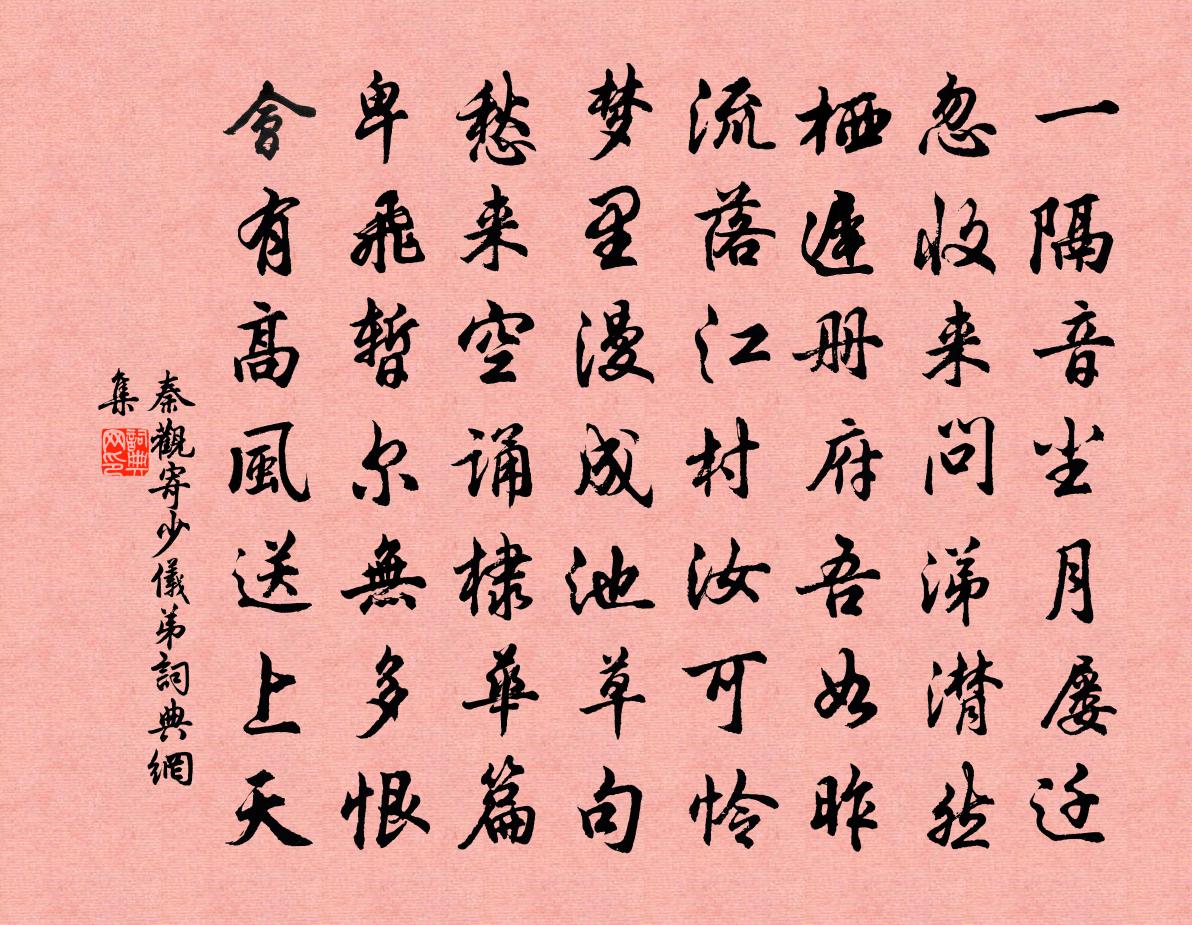 一隔音尘月屡迁
忽收来问涕潸然
栖遲册府吾如昨
流落江村汝可怜
梦里漫成池草句
愁来空诵棣華篇
卑飛暫尔無多恨
會有髙風送上天
秦觀寄少儀弟詞典網
集
詞典网印